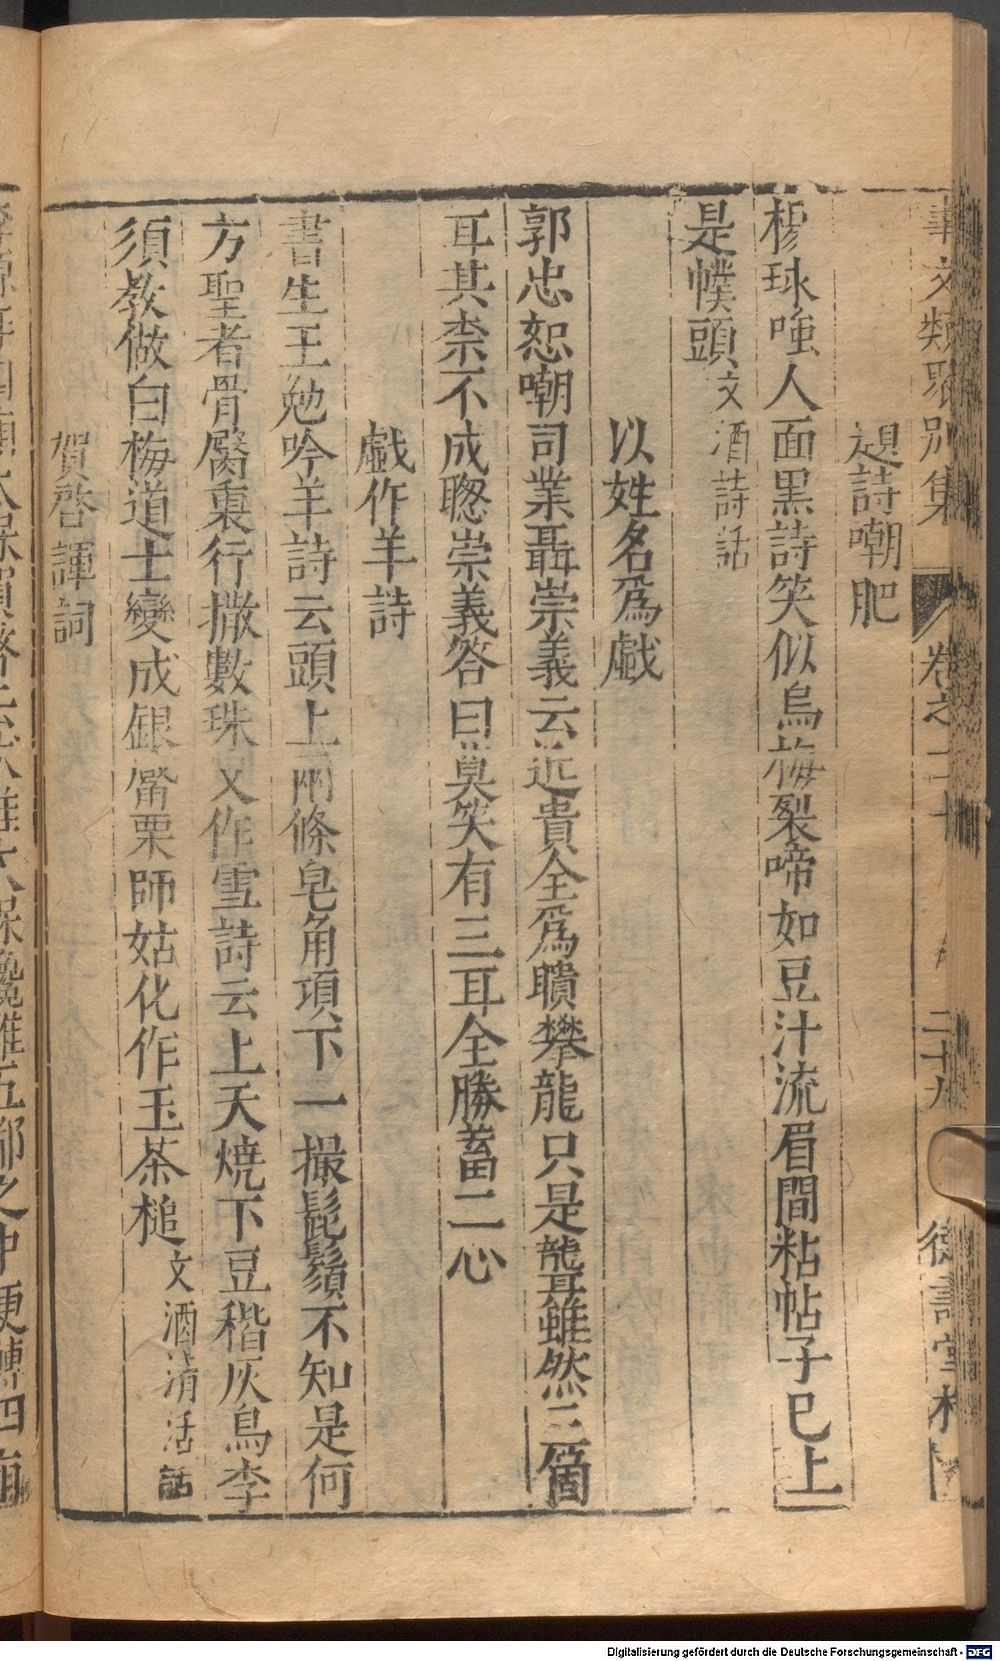 事文類聚別集 卷之二十 二十九 德壽堂梓
題詩嘲肥
穆球嗤人面黑詩笑似烏梅裂啼如豆汁流眉間粘帖子巳上
是幞頭文酒詩話
以姓名爲戱
郭忠恕嘲司業聶崇義云近貴全爲聵攀龍只是聾雖然三箇
耳其柰不成聦崇義答曰莫笑有三耳全勝蓄二心
戱作羊詩
書生王勉吟羊詩云頭上兩條皂角項下一撮髭鬚不知是何
方聖者骨臋裏行撒數珠又作雪詩云上天燒下豆稭灰烏李
須教做白梅道士變成銀觱栗師姑化作玉茶槌文酒清活話
賀啓諢詞
Digitalisierung gefördert durch die Deutsche Forschungsgemeinschaft - DFG